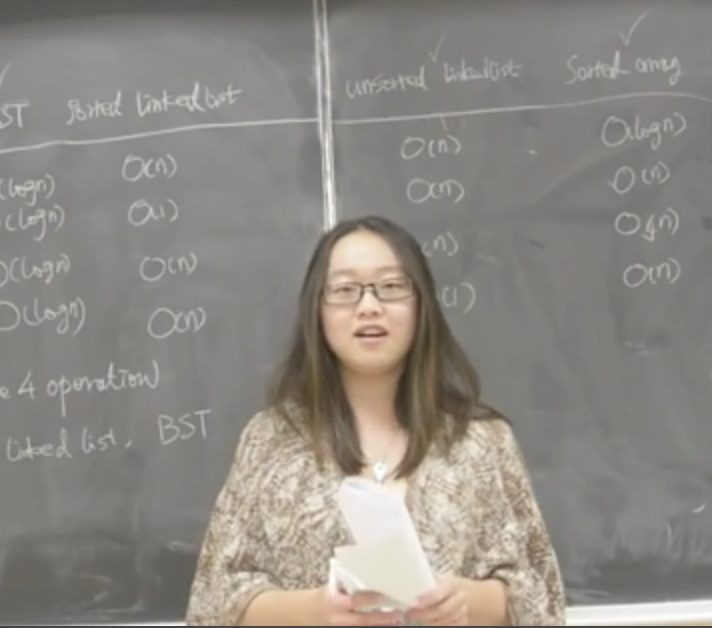 ST sorted linked list unsorted linked list Sorted array
(logn) O(n) O(n) O(logn)
(logn) O(1) O(n) O(n)
O(logn) O(n) (n) O(n)
O(logn) O(n) (1) O(n)
e 4 operation)
linked list, BST